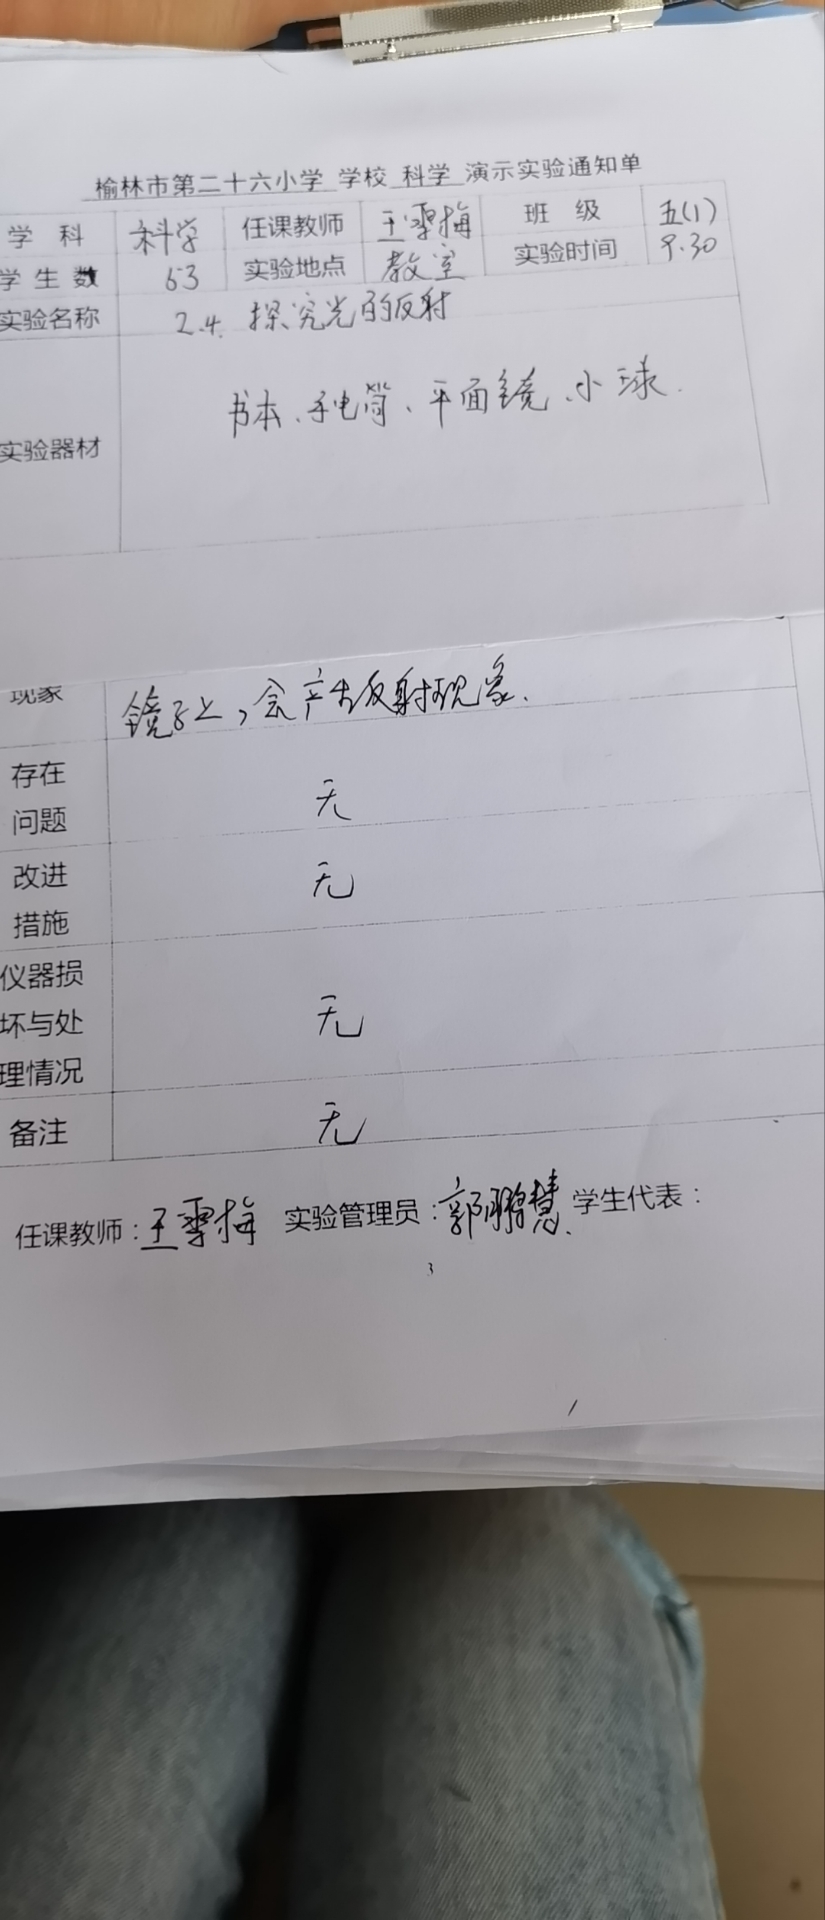 榆林市第二十六小学 学校 科学 演示实验通知单
学 科 科学 任课教师 王雪梅 班 级 五(1)
学 生 数 53 实验地点 教室 实验时间 9.30
实验名称 2.4. 探究光的反射
实验器材 书本、手电筒、平面镜、小球.
现象 镜子上,会产生反射现象.
存在
问题 无
改进
措施 无
仪器损
坏与处
理情况 无
备注 无
任课教师:王雪梅 实验管理员:郭鹏慧. 学生代表:
3